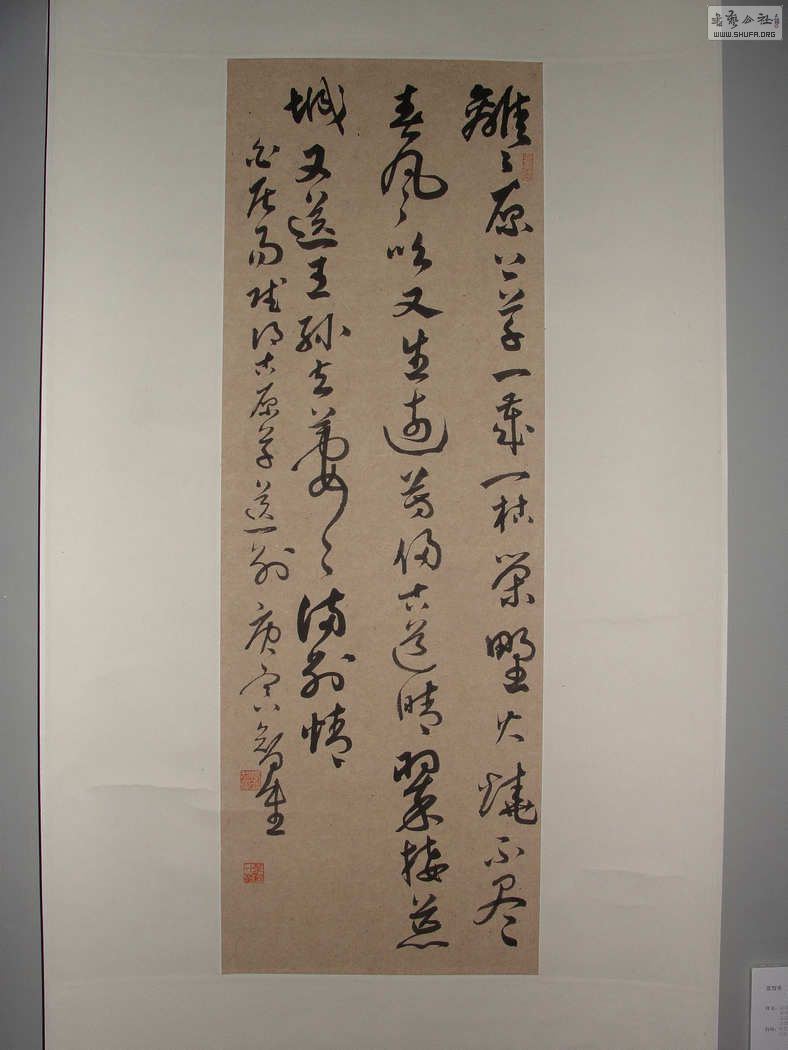 離〻原上草一歲一枯榮野火燒不盡
春風吹又生遠芳侵古道晴翠接荒
城又送王孫去萋〻滿別情
白居易賦得古原草送別 庚寅智
书艺公社
WWW.SHUFA.ORG